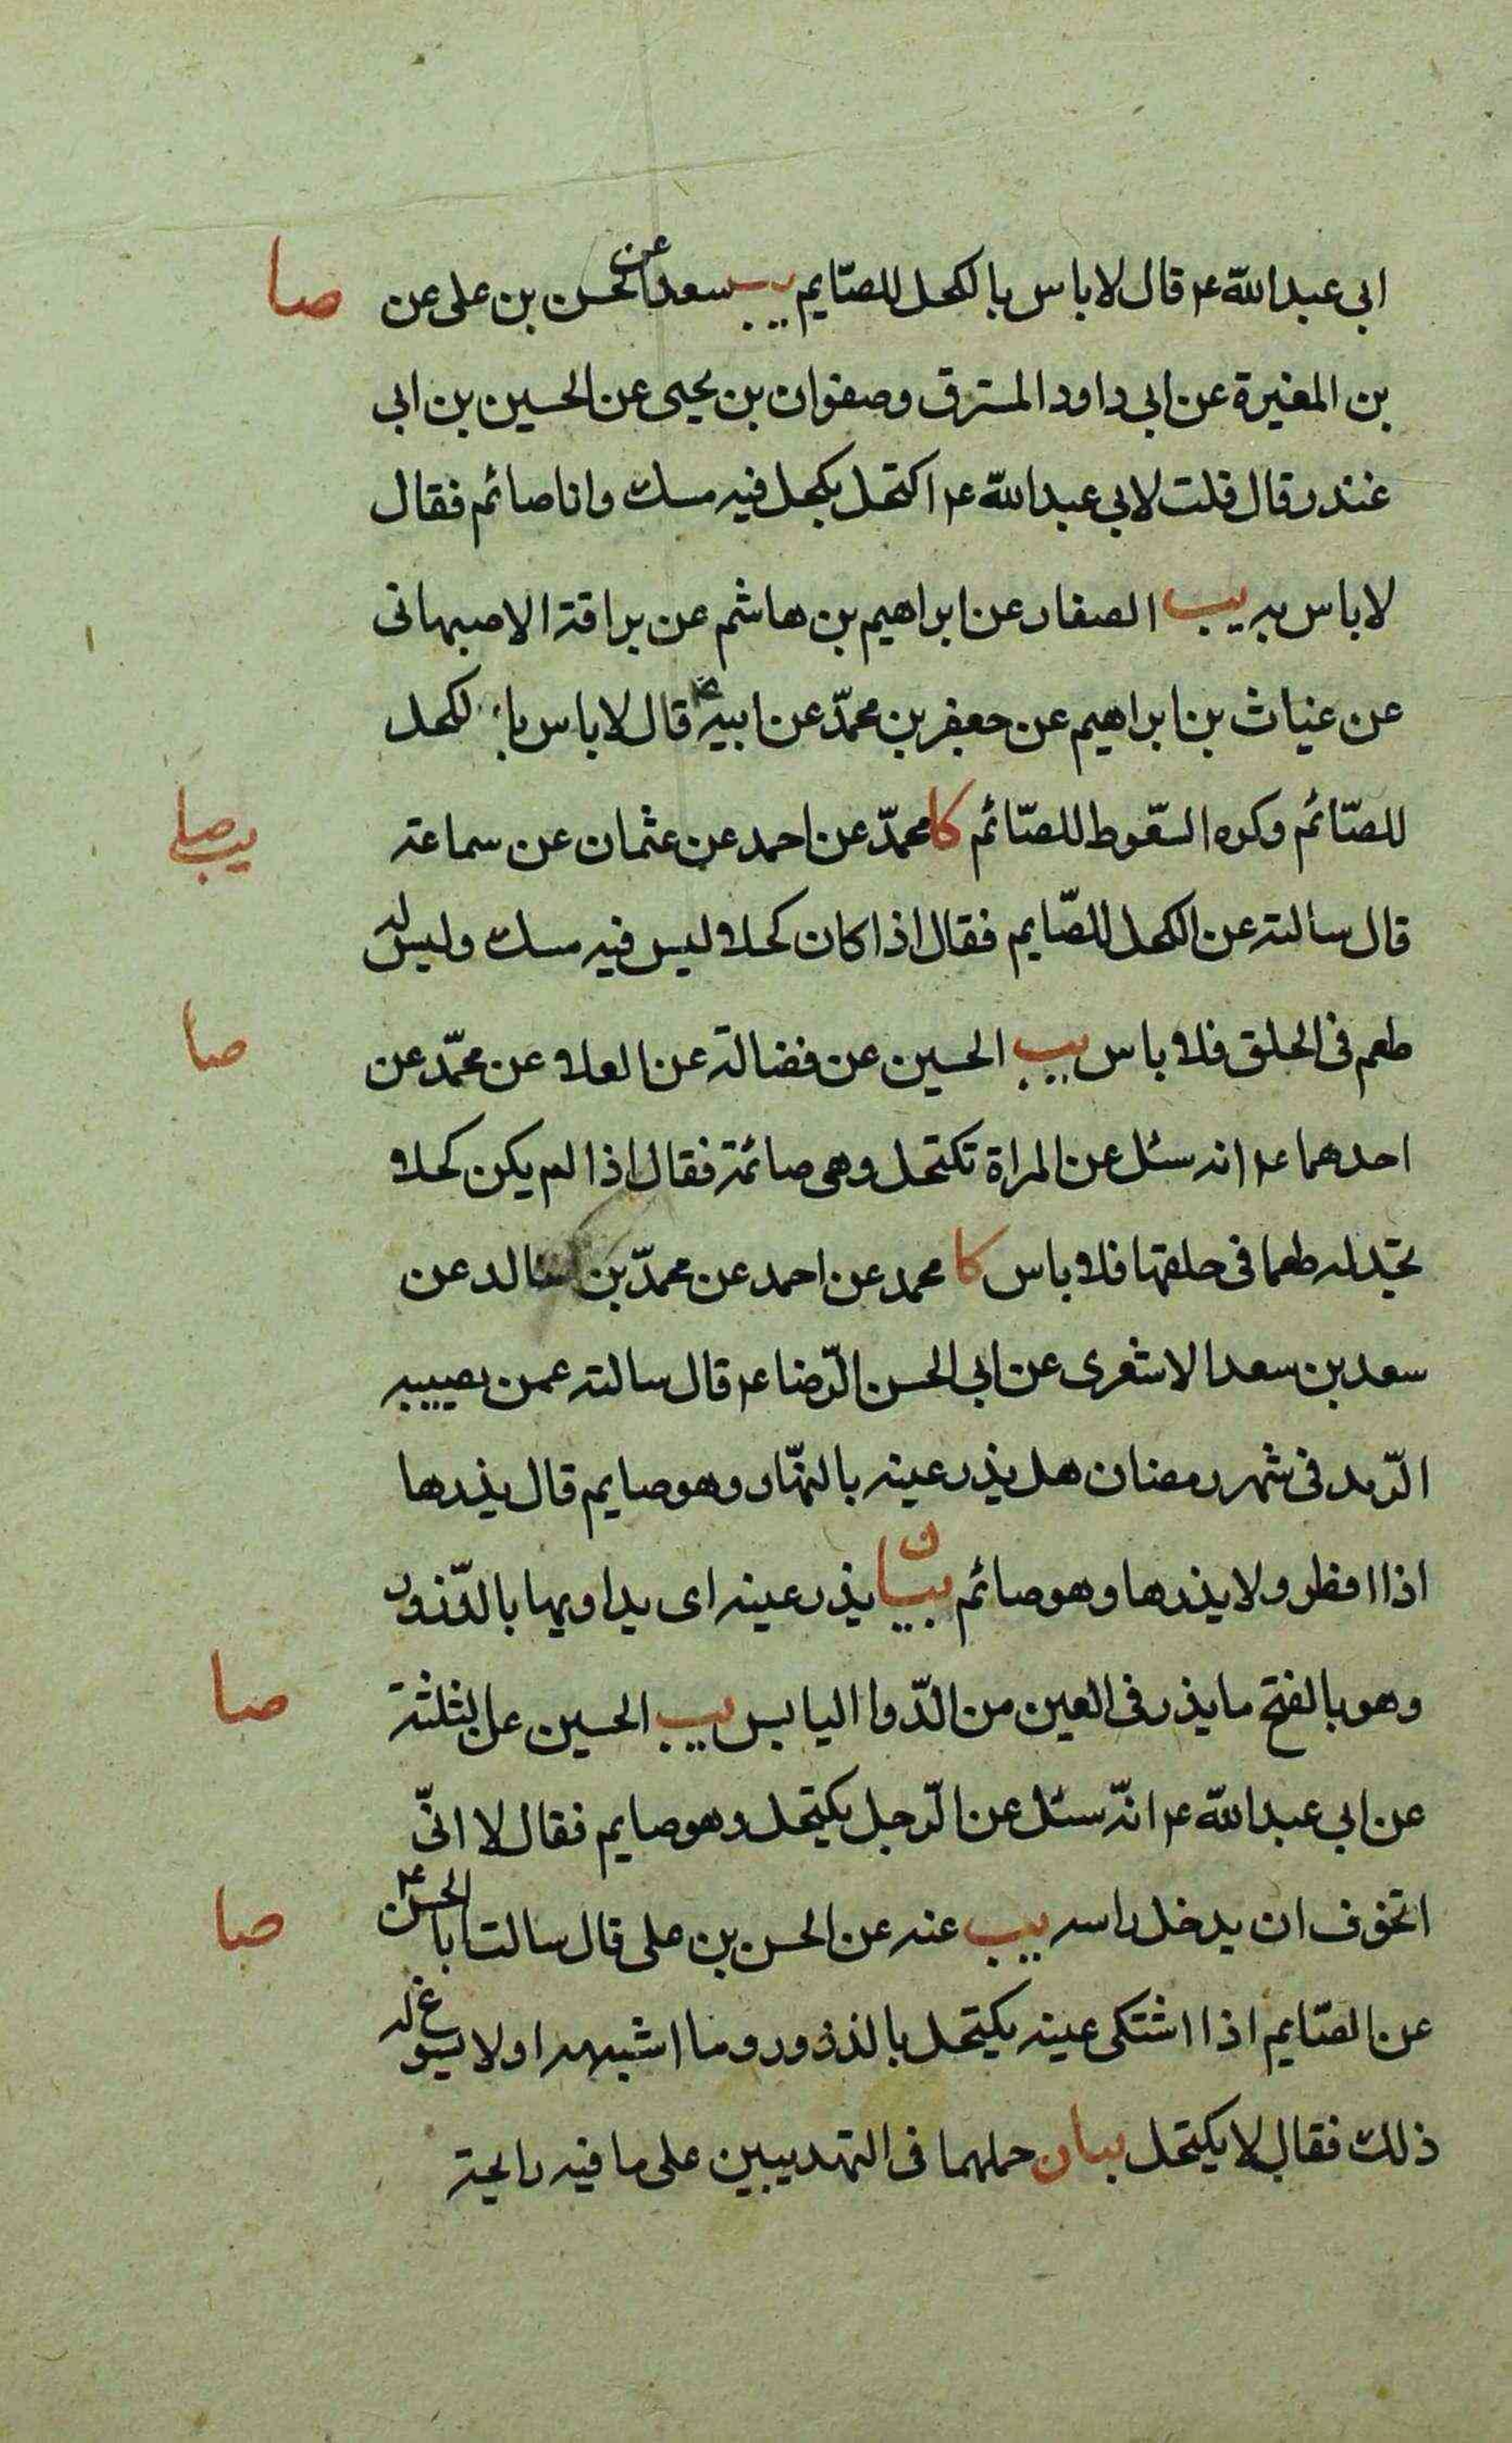 ابى عبد الله عم قال لا باس بالكحل للصّايم يب سعد عن الحسن بن على عن صا
بن المغيرة عن ابى داود المسترق وصفوان بن يحيى عن الحسين بن ابى
غندر قال قلت لابى عبد الله عم اكتحل بكحل فيه مسك وانا صائم فقال
لا باس به يب الصفار عن ابراهيم بن هاشم عن براقة الاصبهانى
عن غياث بن ابراهيم عن جعفر بن محمّد عن ابيه قال لا باس بالكحل
للصّائم وكره السّعوط للصّائم كا محمّد عن احمد عن عثمان عن سماعة يب صا
قال سالته عن الكحل للصّايم فقال اذا كان كحلا ليس فيه مسك وليس له
طعم فى الحلق فلا باس يب الحسين عن فضالة عن العلا عن محمّد عن صا
احدهما عم انه سئل عن المراة تكتحل وهى صائمة فقال اذا لم يكن كحلا
تجد له طعما فى حلقها فلا باس كا محمد عن احمد عن محمّد بن خالد عن
سعد بن سعد الاشعرى عن ابى الحسن الرّضا عم قال سالته عمن يصيبه
الرّمد فى شهر رمضان هل يذر عينه بالنهّار وهو صايم قال يذرها
اذا افطر ولا يذرها وهو صائم بيان يذر عينه اى يداويها بالذّرور
وهو بالفتح ما يذر فى العين من الدّوا اليابس يب الحسين عن الثلثة صا
عن ابى عبد الله عم انّه سئل عن الرّجل يكتحل وهو صايم فقال لا انّى
اتخوف ان يدخل راسه يب عنه عن الحسن بن على قال سالت ابا الحسن عم صا
عن الصّايم اذا اشتكى عينه يكتحل بالذرور وما اشبهه او لا يسوغ له
ذلك فقال لا يكتحل بيان حملهما فى التهديبين على ما فيه رايحة